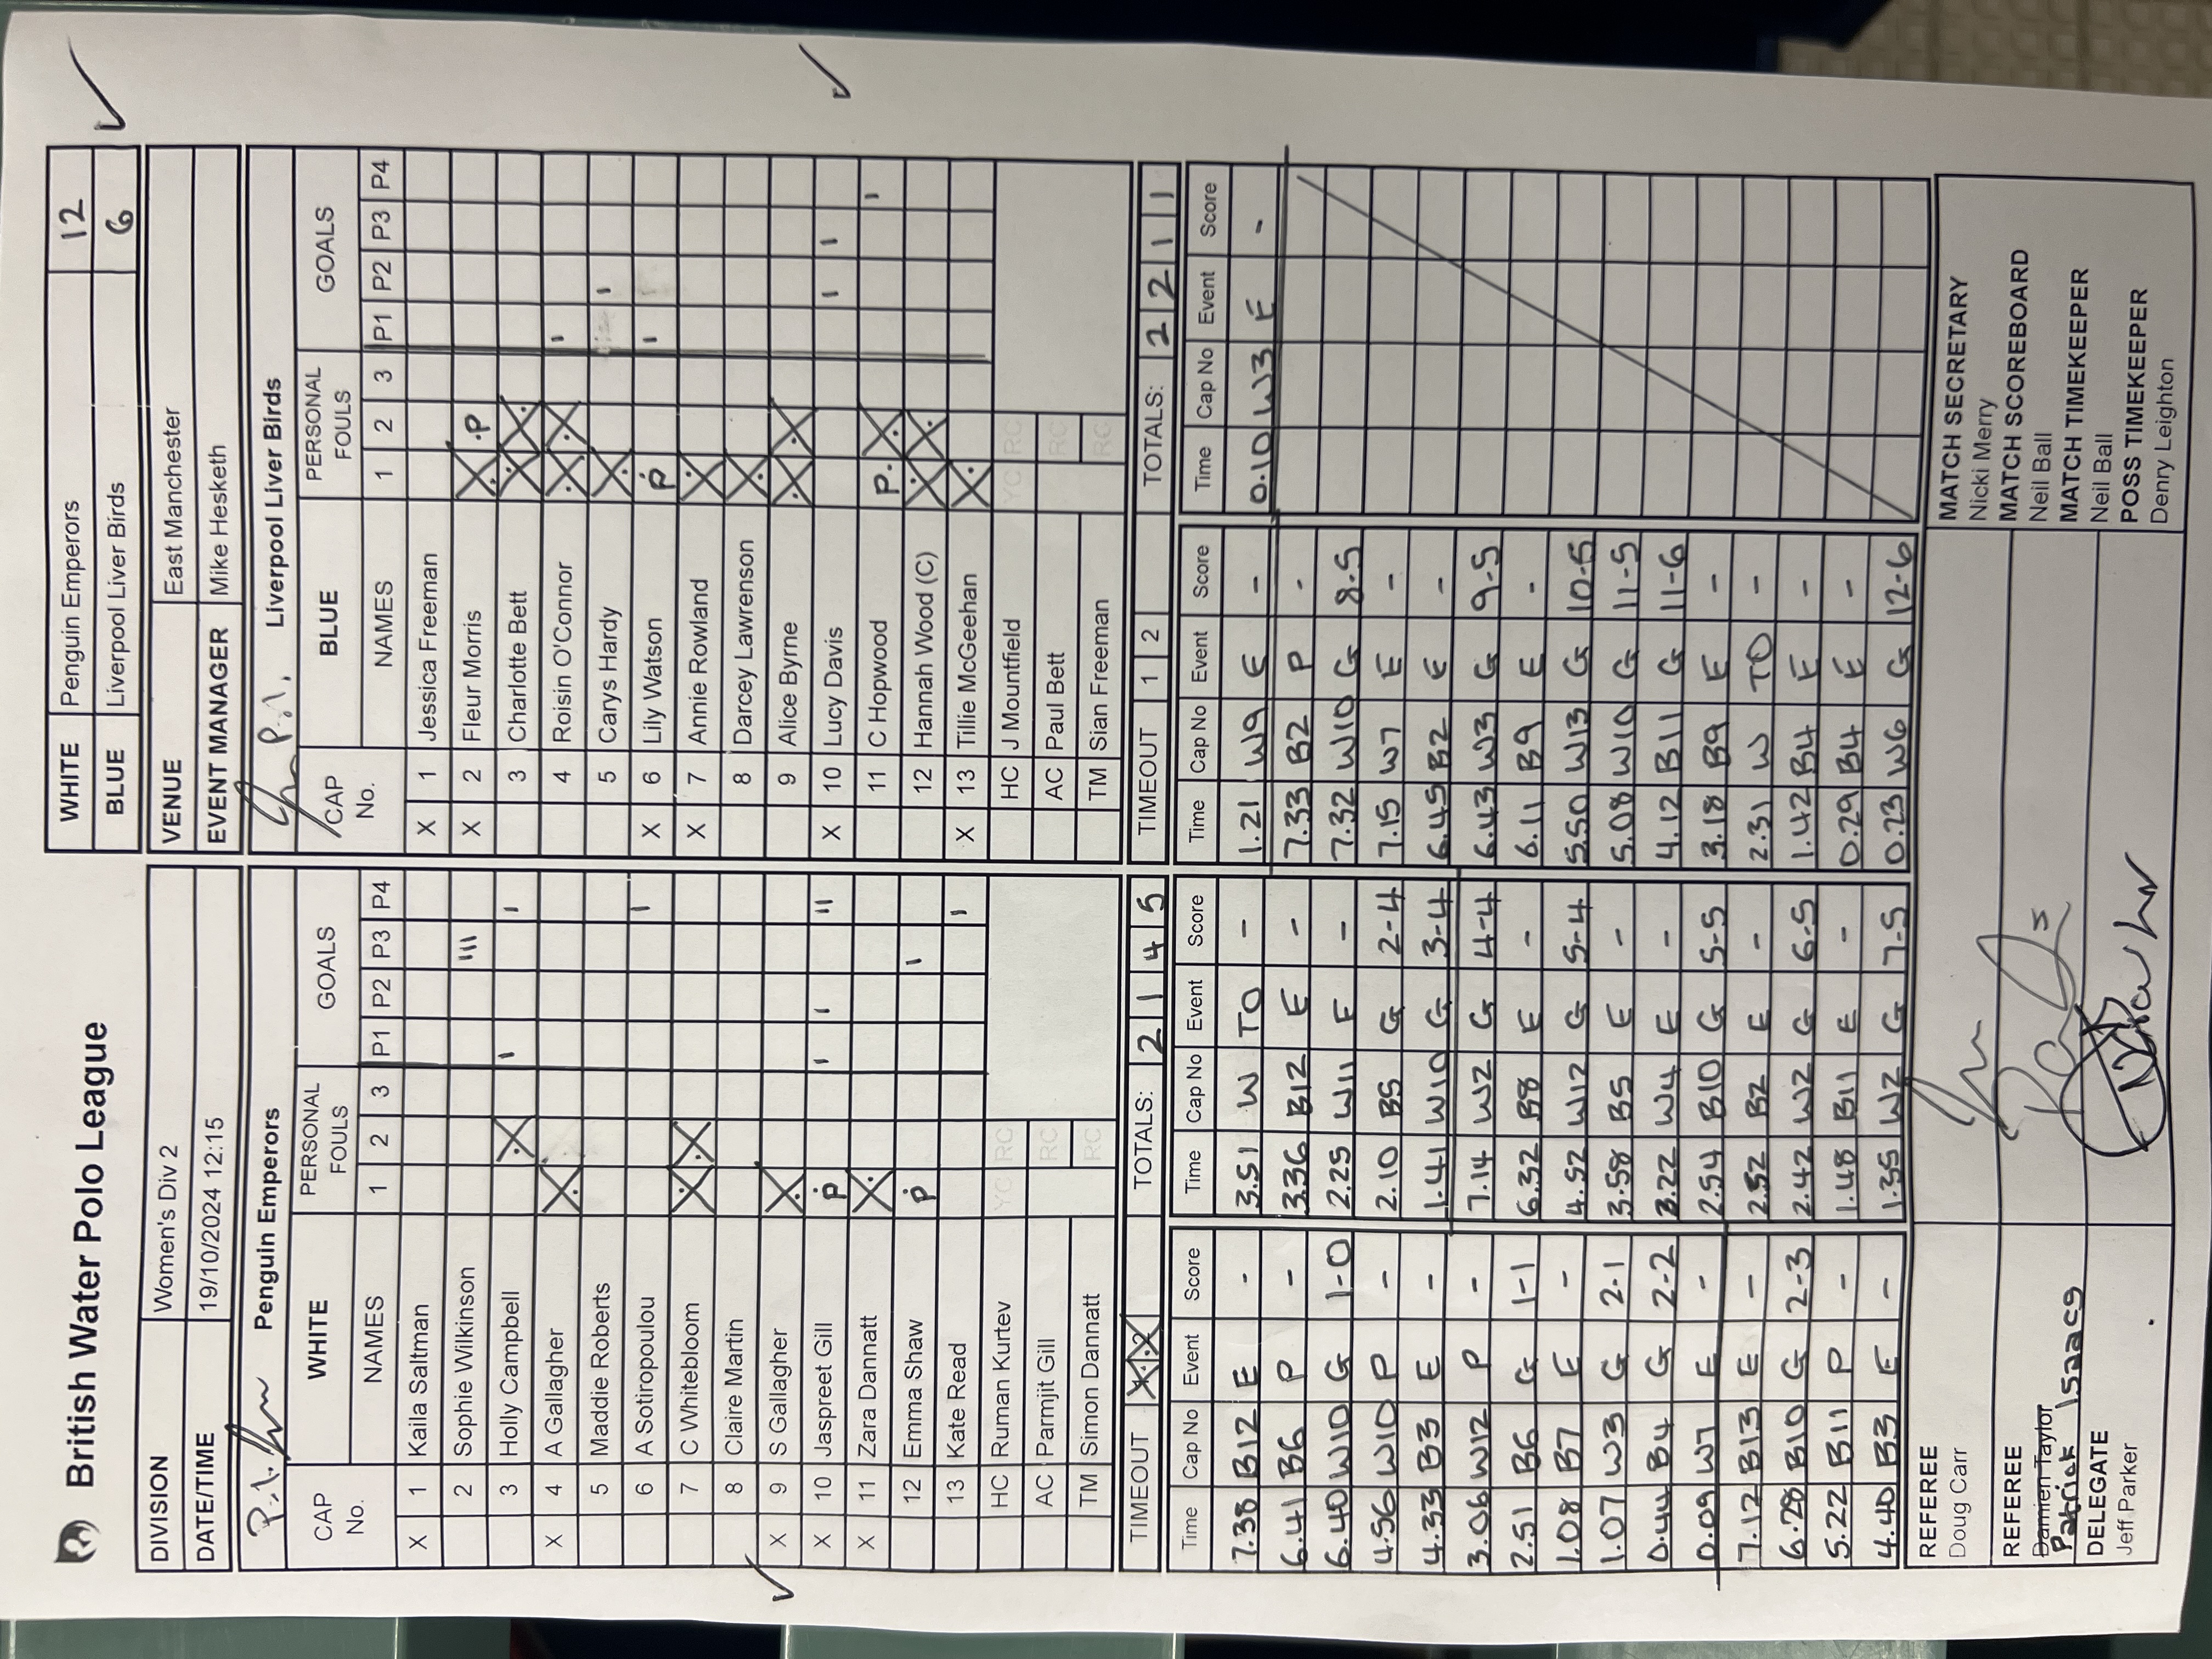 British Water Polo League
WHITE Penguin Emperors 12
BLUE Liverpool Liver Birds 6
DIVISION Women's Div 2
DATE/TIME 19/10/2024 12:15
VENUE East Manchester
EVENT MANAGER Mike Hesketh
Penguin Emperors
CAP No. WHITE NAMES PERSONAL FOULS 1 2 3 GOALS P1 P2 P3 P4
X 1 Kaila Saltman
2 Sophie Wilkinson III
3 Holly Campbell X I I
X 4 A Gallagher X
5 Maddie Roberts
6 A Sotiropoulou I
7 C Whitebloom X X
8 Claire Martin
X 9 S Gallagher X
X 10 Jaspreet Gill P I I II
X 11 Zara Dannatt X
12 Emma Shaw P I
13 Kate Read I
HC Ruman Kurtev YC RC
AC Parmjit Gill RC
TM Simon Dannatt RC
TIMEOUT 1 2 TOTALS: 2 1 4 5
Liverpool Liver Birds
CAP No. BLUE NAMES PERSONAL FOULS 1 2 3 GOALS P1 P2 P3 P4
X 1 Jessica Freeman
X 2 Fleur Morris X P
3 Charlotte Bett X X
4 Roisin O'Connor X X I
5 Carys Hardy X I
X 6 Lily Watson P I
X 7 Annie Rowland X
8 Darcey Lawrenson X
9 Alice Byrne X X
X 10 Lucy Davis I I
11 C Hopwood P X I
12 Hannah Wood (C) X X
X 13 Tillie McGeehan X
HC J Mountfield YC RC
AC Paul Bett RC
TM Sian Freeman RC
TIMEOUT 1 2 TOTALS: 2 2 1 1
Time Cap No Event Score
7.38 B12 E -
6.41 B6 P -
6.40 W10 G 1-0
4.56 W10 P -
4.33 B3 E -
3.06 W12 P -
2.51 B6 G 1-1
1.08 B7 E -
1.07 W3 G 2-1
0.44 B4 G 2-2
0.09 W7 E -
7.12 B13 E -
6.28 B10 G 2-3
5.22 B11 P -
4.40 B3 E -
Time Cap No Event Score
3.51 W TO -
3.36 B12 E -
2.25 W11 E -
2.10 B5 G 2-4
1.41 W10 G 3-4
7.14 W2 G 4-4
6.32 B8 E -
4.52 W12 G 5-4
3.58 B5 E -
3.22 W4 E -
2.54 B10 G 5-5
2.52 B2 E -
2.42 W2 G 6-5
1.48 B11 E -
1.35 W2 G 7-5
Time Cap No Event Score
1.21 W9 E -
7.33 B2 P -
7.32 W10 G 8-5
7.15 W7 E -
6.45 B2 E -
6.43 W3 G 9-5
6.11 B9 E -
5.50 W13 G 10-5
5.08 W10 G 11-5
4.12 B11 G 11-6
3.18 B9 E -
2.31 W TO -
1.42 B4 E -
0.29 B4 E -
0.23 W6 G 12-6
Time Cap No Event Score
0.10 W3 E -
REFEREE
Doug Carr
REFEREE
Damien Taylor
Patrick Isaacs
DELEGATE
Jeff Parker
MATCH SECRETARY
Nicki Merry
MATCH SCOREBOARD
Neil Ball
MATCH TIMEKEEPER
Neil Ball
POSS TIMEKEEPER
Denny Leighton